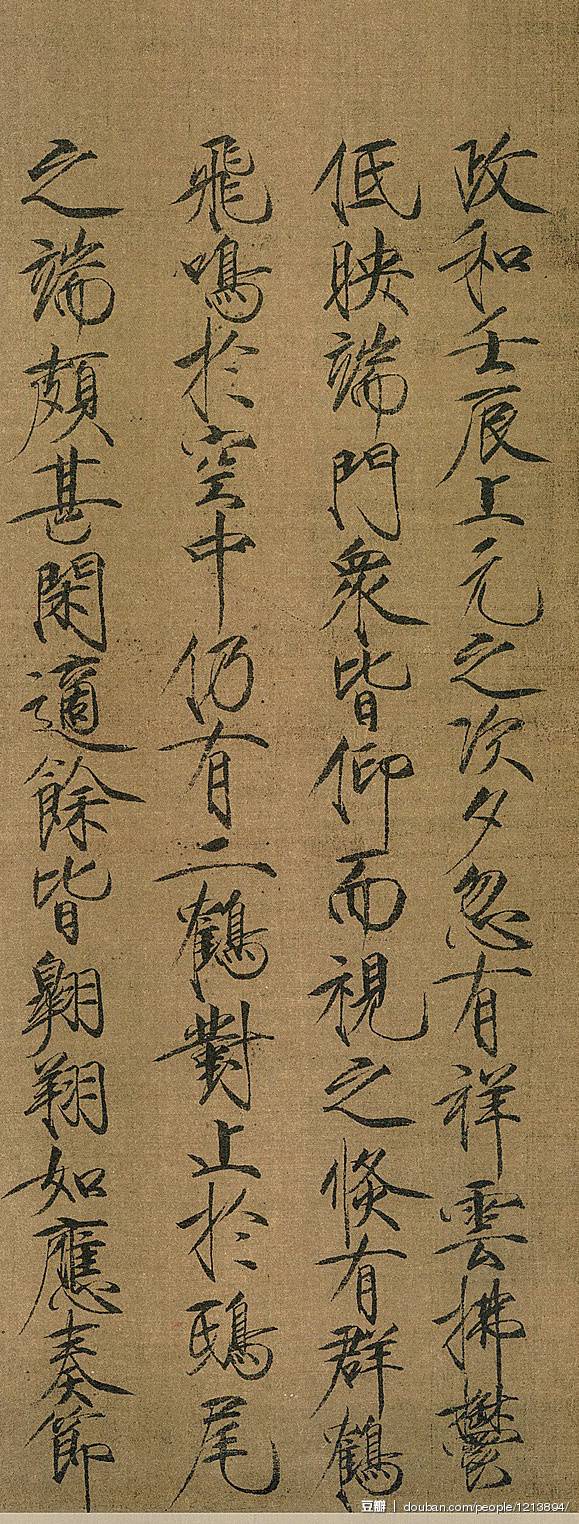 政和壬辰上元之次夕忽有祥雲拂鬱
低映端門衆皆仰而視之倐有群鶴
飛鳴於空中仍有二鶴對止於鴟尾
之端頗甚閑適餘皆翱翔如應奏節
豆瓣 | douban.com/people/1213894/